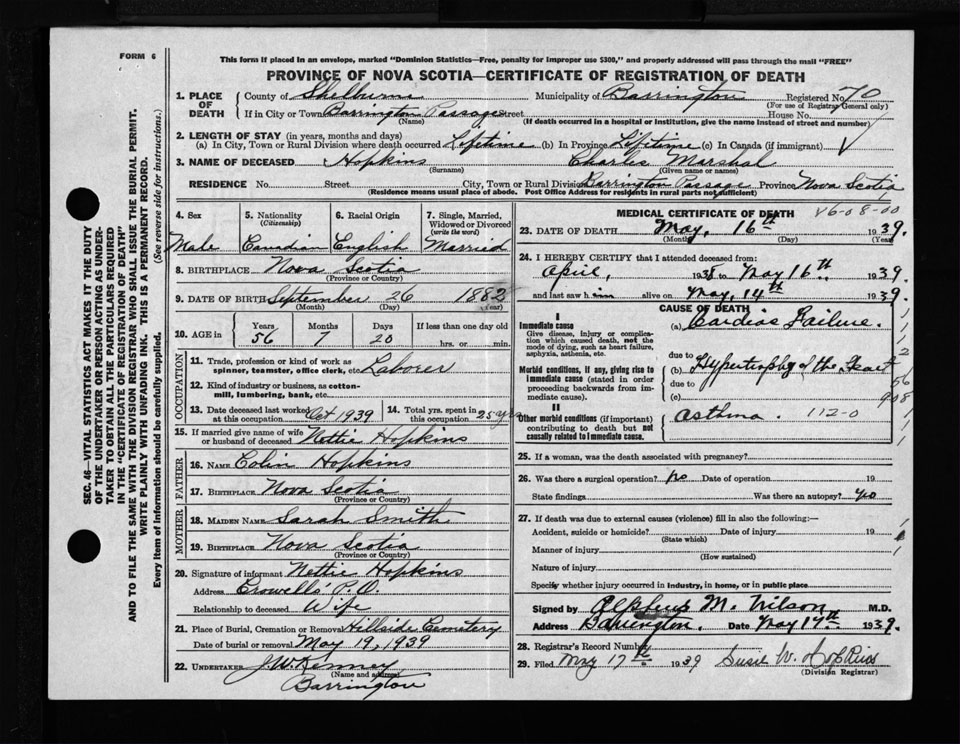 FORM 6
This form if placed in an envelope, marked "Dominion Statistics—Free, penalty for improper use $300," and properly addressed will pass through the mail "FREE"
PROVINCE OF NOVA SCOTIA—CERTIFICATE OF REGISTRATION OF DEATH
SEC. 46—VITAL STATISTICS ACT MAKES IT THE DUTY
OF THE UNDERTAKER OR PERSON ACTING AS UNDER-
TAKER TO OBTAIN ALL THE PARTICULARS REQUIRED
IN THE "CERTIFICATE OF REGISTRATION OF DEATH"
AND TO FILE THE SAME WITH THE DIVISION REGISTRAR WHO SHALL ISSUE THE BURIAL PERMIT.
WRITE PLAINLY WITH UNFADING INK. THIS IS A PERMANENT RECORD.
Every item of Information should be carefully supplied. (See reverse side for instructions.)
1. PLACE OF DEATH County of Shelburne Municipality of Barrington Registered No. 70
(For use of Registrar General only)
If in City or Town Barrington Passage Street House No.
(Name) (If death occurred in a hospital or institution, give the name instead of street and number)
2. LENGTH OF STAY (in years, months and days)
(a) In City, Town or Rural Division where death occurred Lifetime (b) In Province Lifetime (c) In Canada (if immigrant)
3. NAME OF DECEASED Hopkins Charles Marshal
(Surname) (Given name or names)
RESIDENCE No. Street City, Town or Rural Division Barrington Passage Province Nova Scotia
(Residence means usual place of abode. Post Office Address for residents in rural parts not sufficient)
4. Sex 5. Nationality (Citizenship) 6. Racial Origin 7. Single, Married, Widowed or Divorced (write the word)
Male Canadian English Married
8. BIRTHPLACE Nova Scotia
(Province or Country)
9. DATE OF BIRTH September 26 1882
(Month) (Day) (Year)
10. AGE in Years Months Days If less than one day old
56 7 20 hrs. or min.
OCCUPATION
11. Trade, profession or kind of work as spinner, teamster, office clerk, etc. Laborer
12. Kind of industry or business, as cotton-mill, lumbering, bank, etc.
13. Date deceased last worked at this occupation Oct 1939 14. Total yrs. spent in this occupation 25 yrs
15. If married give name of wife or husband of deceased Nettie Hopkins
FATHER
16. Name Colin Hopkins
17. Birthplace Nova Scotia
(Province or Country)
MOTHER
18. Maiden Name Sarah Smith
19. Birthplace Nova Scotia
(Province or Country)
20. Signature of informant Nettie Hopkins
Address Crowells P.O.
Relationship to deceased Wife
21. Place of Burial, Cremation or Removal Hillside Cemetery
Date of burial or removal May 19, 1939
22. UNDERTAKER J W Kenney
(Name and address)
Barrington
MEDICAL CERTIFICATE OF DEATH
23. DATE OF DEATH May, 16th 1939.
(Month) (Day) (Year)
24. I HEREBY CERTIFY that I attended deceased from:
April, 1938 to May 16th. 1939
and last saw him alive on May, 14th. 1939.
CAUSE OF DEATH
I
Immediate cause
Give disease, injury or complication which caused death, not the mode of dying, such as heart failure, asphyxia, asthenia, etc.
(a) Cardiac Failure.
due to
Morbid conditions, if any, giving rise to immediate cause (stated in order proceeding backwards from immediate cause).
(b) Hypertrophy of the Heart
due to
(c)
II
Other morbid conditions (if important) contributing to death but not causally related to immediate cause.
Asthma. 112-0
25. If a woman, was the death associated with pregnancy?
26. Was there a surgical operation? No Date of operation 19
State findings Was there an autopsy? No
27. If death was due to external causes (violence) fill in also the following:—
Accident, suicide or homicide? Date of injury 19
(State which)
Manner of injury
(How sustained)
Nature of injury
Specify whether injury occurred in industry, in home, or in public place
Signed by M. Wilson M.D.
Address Barrington. Date May 17th. 1939.
28. Registrar's Record Number
29. Filed May 17th 1939 Susie W. Hopkins
(Division Registrar)